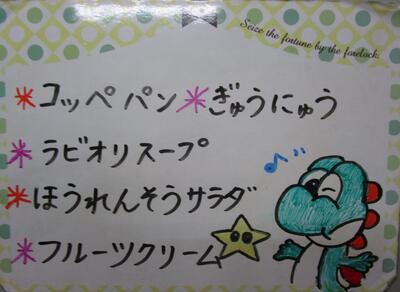 Seize the fortune by the forelock.
*コッペパン*ぎゅうにゅう
*ラビオリスープ
*ほうれんそうサラダ
*フルーツクリーム